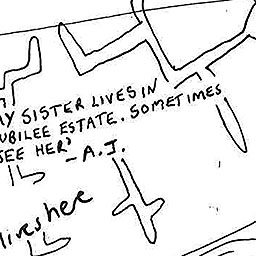 MY SISTER LIVES IN
JUBILEE ESTATE. SOMETIMES
SEE HER'
-A.J.
lives here